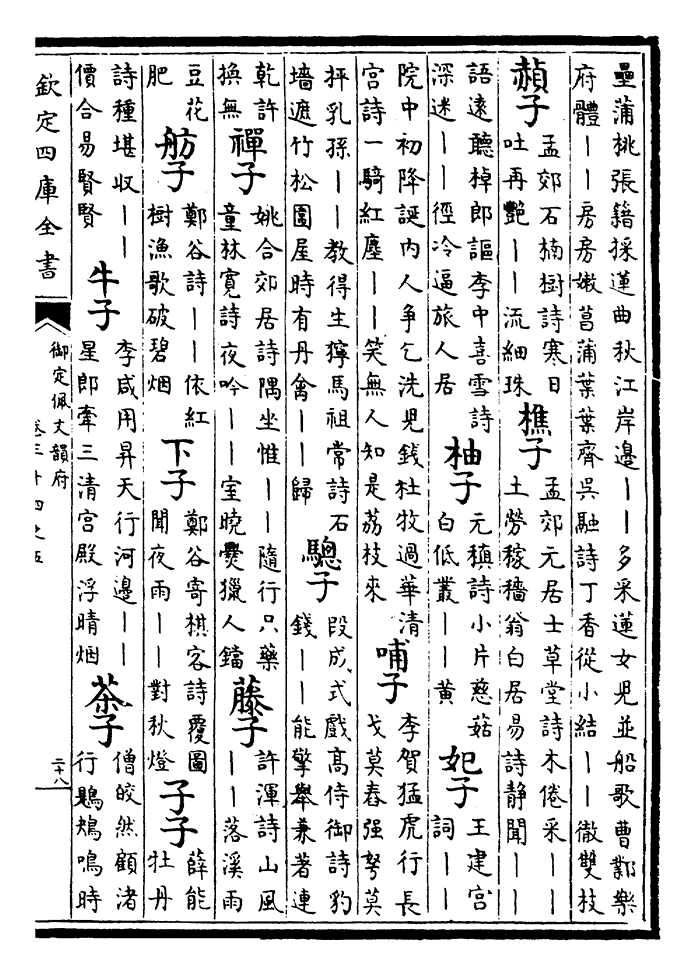 疊蒲桃張籍採蓮曲秋江岸邊――多采蓮女兒並船歌曹鄴樂
府體――房房嫩菖蒲葉葉齊吳融詩丁香從小結――徹雙枝
赬子
孟郊石楠樹詩寒日
吐再艷――流細珠
樵子
孟郊元居士草堂詩木倦采――
土勞稼穡翁白居易詩靜聞――
語遠聽棹郎謳李中喜雪詩
深迷――徑冷逼旅人居
柚子
元稹詩小片慈菇
白低叢――黄
妃子
王建宮
詞――
院中初降誕内人争乞洗兒錢杜牧過華清
宮詩一騎紅塵――笑無人知是荔枝來
哺子
李賀猛虎行長
戈莫舂强弩莫
抨乳孫――教得生獰馬祖常詩石
墻遮竹松圍屋時有丹禽――歸
驄子
段成式戲高侍御詩豹
錢――能擎舉兼著連
乾許
換無
禪子
姚合郊居詩隅坐惟――隨行只藥
童林寬詩夜吟――室曉爨獵人鐺
藤子
許渾詩山風
――落溪雨
豆花
肥
舫子
鄭谷詩――依紅
樹漁歌破碧烟
下子
鄭谷寄棋客詩覆圖
聞夜雨――對秋燈
子子
薛能
牡丹
詩種堪收――
價合易賢賢
牛子
李咸用昇天行河邊――
星郎牽三清宮殿浮晴烟
茶子
僧皎然顧渚
行鶗鴂鳴時
欽定四庫全書
御定佩文韻府
卷三十四之五
二十八